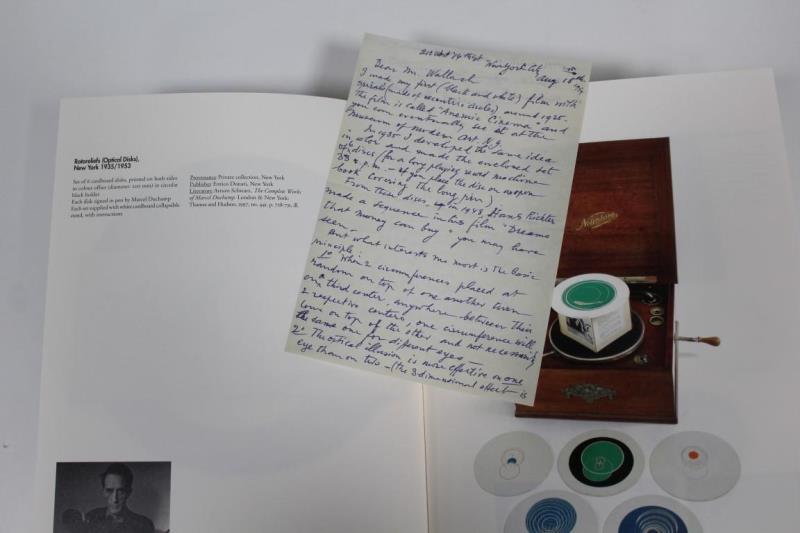 Rotoreliefs (Optical Disks),
New York 1935/1953
Set of 6 cardboard disks, printed on both sides
in colour offset (diameter: 200 mm) in circular
black holder
Each disk signed in pen by Marcel Duchamp
Each set supplied with white cardboard collapsible
stand, with instructions
Provenance: Private collection, New York
Publisher: Enrico Donati, New York
Literature: Arturo Schwarz, The Complete Works
of Marcel Duchamp. London & New York:
Thames and Hudson, 1997, no. 441, p. 728-
New York City
Aug 18th
Dear Mr. Wallach
I made my first (black and white) film with
spirals (made of eccentric circles) around 1925.
The film is called "Anemic Cinema" and
you can eventually see it at the
Museum of modern Art N.Y.
In 1935 I developed the same idea
in color and made the enclosed set
of discs (for a long playing record machine
33 r.p.m. - if you put the disc on an open
book covering the long pen)
From these discs, 1948, Hans Richter
made a sequence in his film "Dreams
that money can buy" you may have
seen -
But what interests me most is the basic
principle:
1° When 2 circumferences placed at
random on top of one another turn
on a third center, anywhere between their
2 respective centers, one circumference will
come on top of the other and not necessarily
the same one for different eyes -
2° The optical illusion is more effective on one
eye than on two - (the 3 dimensional effect is